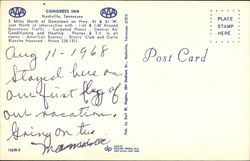 CONGRESS INN
Nashville, Tennessee
3 Miles North of Downtown on Hwy. 41 & 31 W.
Just North of Intersection with I-65 & I-40 Around
Downtown Traffic - Carpeted Floors - Central Air
Conditioning and Heating - Phones - T.V. in all
rooms - American Express - Diners' Club and Carte
Blanche Honored - Phone 228-
PLACE
STAMP
HERE
Post Card
Aug 11 - 1968
Stayed here on
our first day of
our vacation,
Going on to